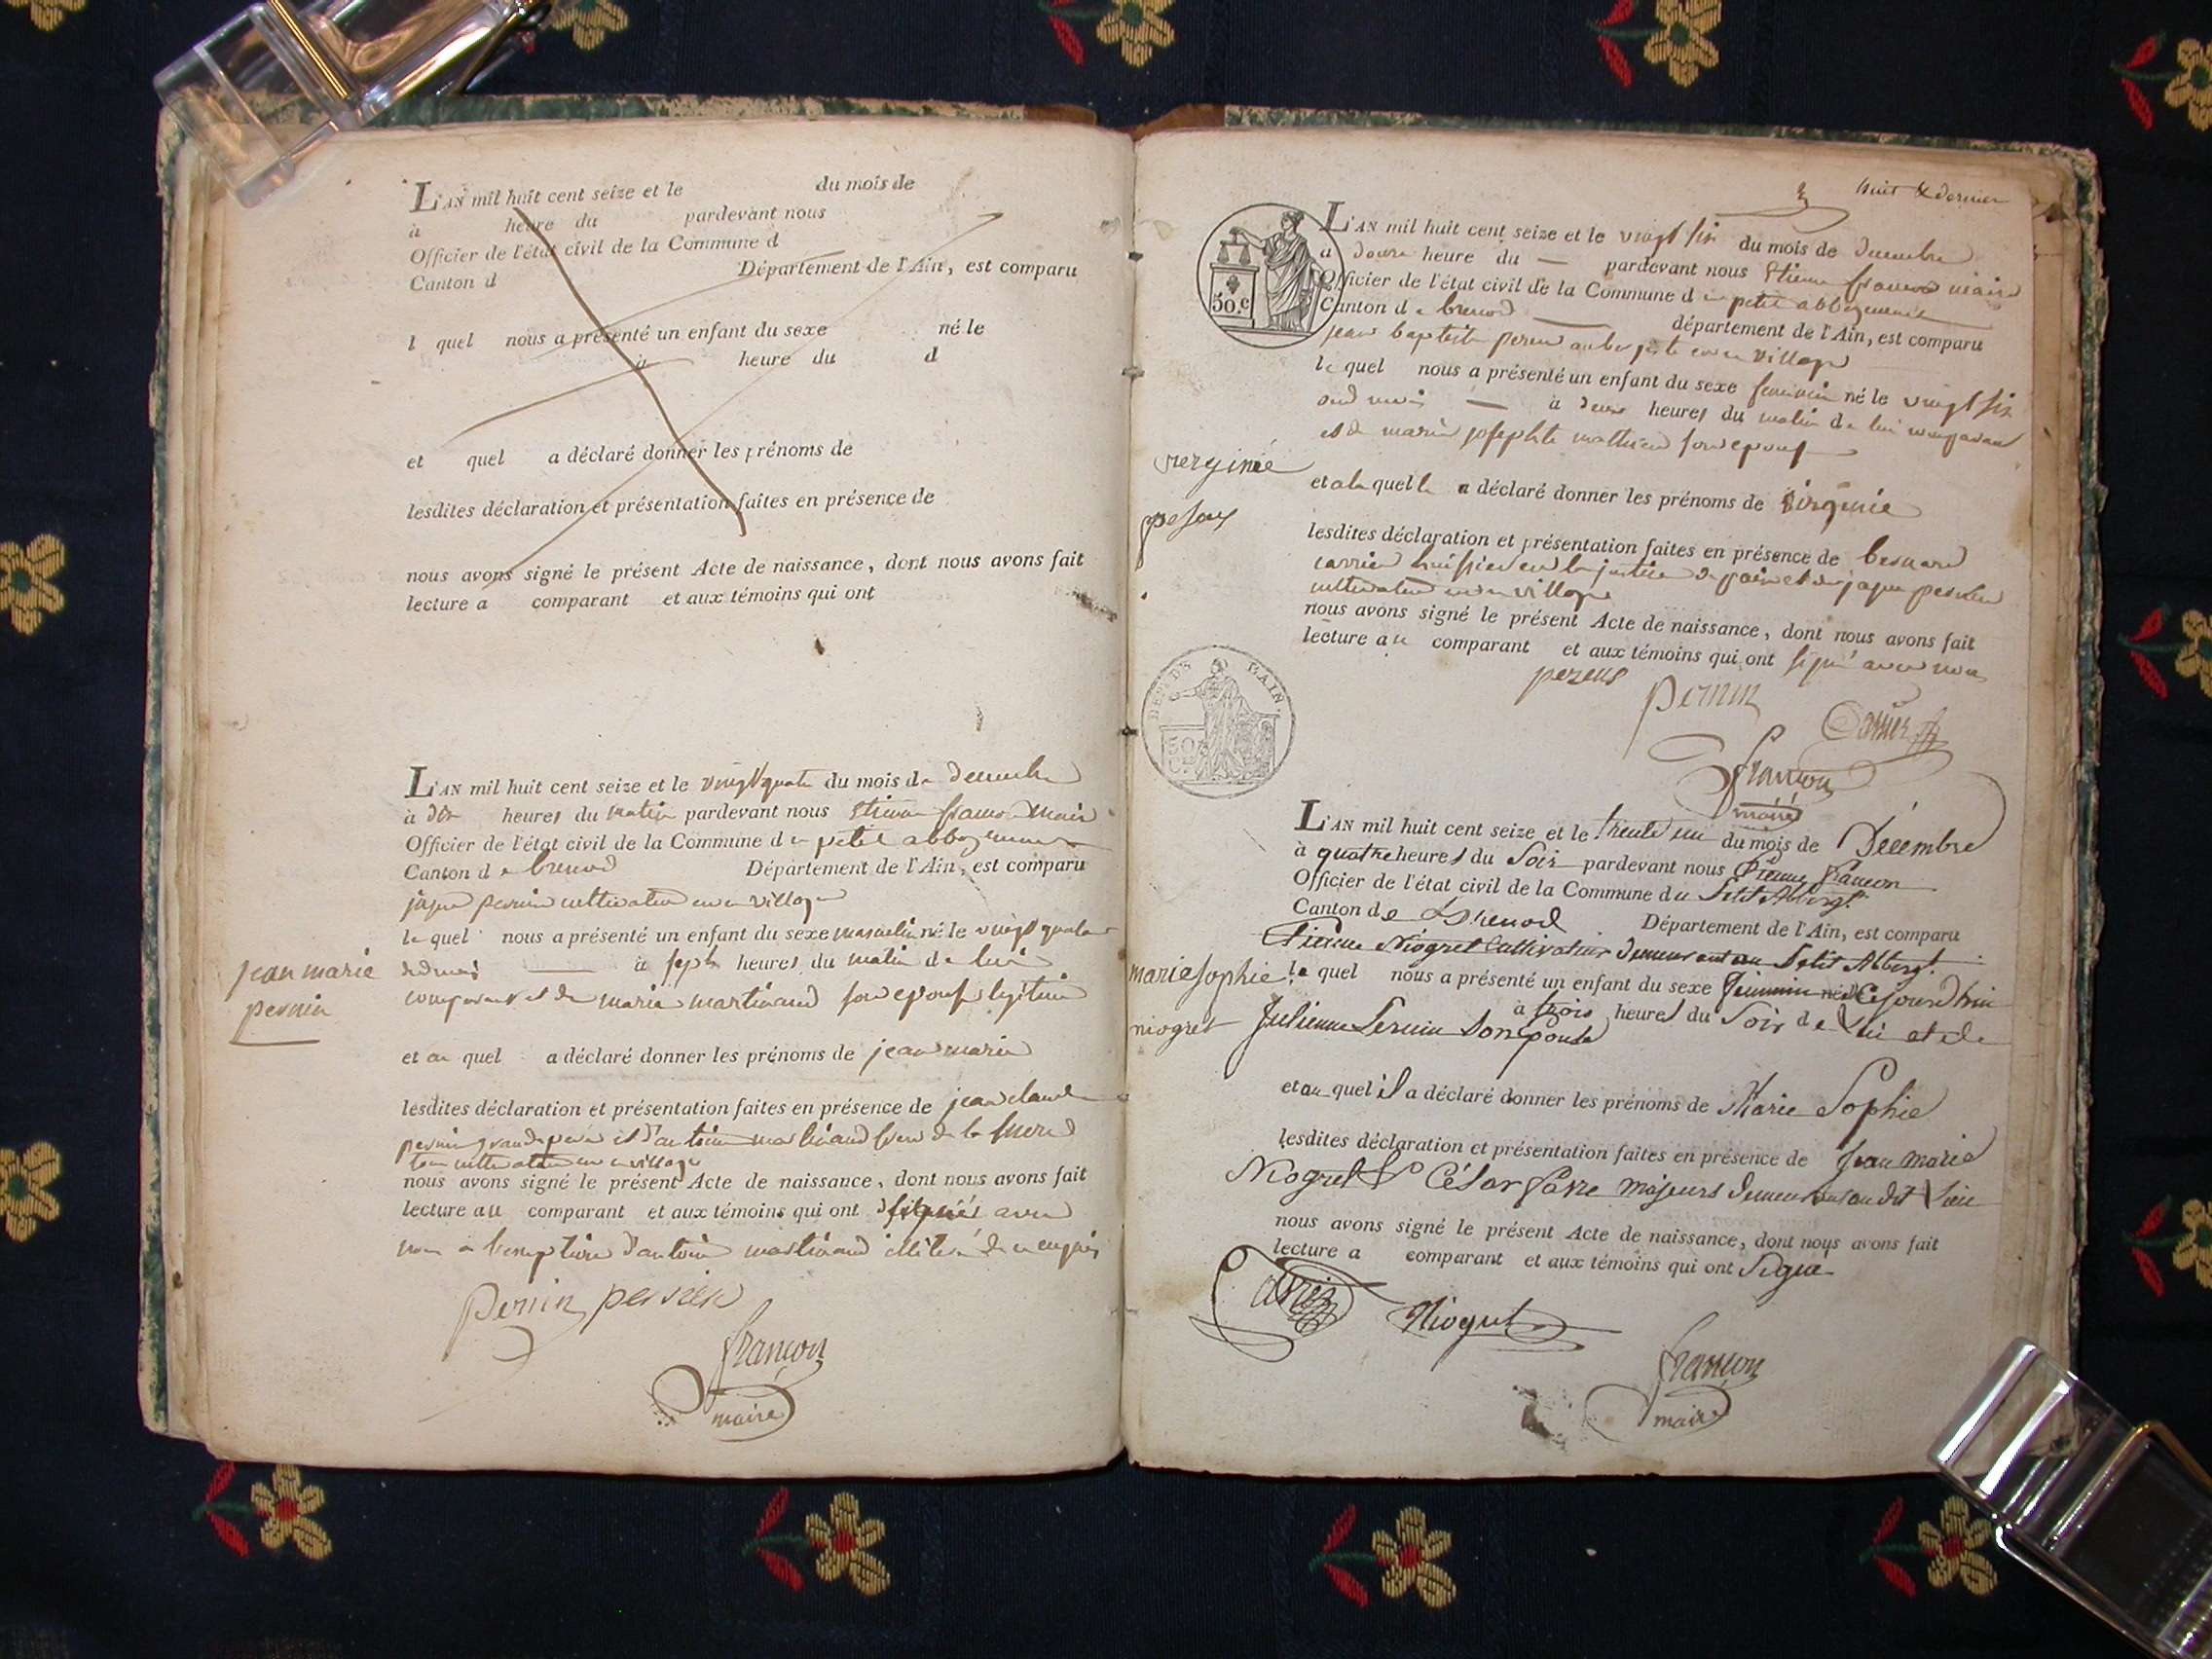 L'AN mil huit cent seize et le du mois de
à heure du pardevant nous
Officier de l'état civil de la Commune d
Canton d Département de l'Ain, est comparu
l quel nous a présenté un enfant du sexe né le
à heure du d
et quel a déclaré donner les prénoms de
lesdites déclaration et présentation faites en présence de
nous avons signé le présent Acte de naissance, dont nous avons fait
lecture a comparant et aux témoins qui ont
L'AN mil huit cent seize et le vingt quatre du mois de decembre
à dix heures du matin pardevant nous Etienne françon maire
Officier de l'état civil de la Commune du petit abbergement
Canton de brenod Département de l'Ain, est comparu
jaque pernin cultivateur en ce village
le quel nous a présenté un enfant du sexe masculin né le vingt quatre
à sept heures du matin de lui
jean marie
pernin
comparant et de marie martinand son epouse legitime
et au quel a déclaré donner les prénoms de jean marie
lesdites déclaration et présentation faites en présence de jean claude
pernin grand pere et d'antoine martinand
cultivateur en ce village
nous avons signé le présent Acte de naissance, dont nous avons fait
lecture au comparant et aux témoins qui ont signés avec
nous a l'exception d'antoine martinand illiteré de ce enquis
Pernin pernin
françon
maire
huit & dernier
L'AN mil huit cent seize et le vingt six du mois de decembre
à douze heure du pardevant nous Etienne françon maire
Officier de l'état civil de la Commune du petit abbergement
50.c
Canton de brenod département de l'Ain, est comparu
jean baptiste en ce village
le quel nous a présenté un enfant du sexe feminin né le vingt six
à deux heures du matin de lui comparant
et de marie josephte mathieu son epouse
verginie
et a la quelle a déclaré donner les prénoms de virginie
lesdites déclaration et présentation faites en présence de bernard
carrier huissier en la justice de paix et de jaque pernin
cultivateur en ce village
nous avons signé le présent Acte de naissance, dont nous avons fait
lecture au comparant et aux témoins qui ont signé avec nous
Pernin
Carrier
françon
maire
DEP. DE L'AIN.
50 C.
L'AN mil huit cent seize et le trente un du mois de Décembre
à quatre heures du Soir pardevant nous Etienne françon
Officier de l'état civil de la Commune du Petit Abbergt.
Canton de Brenod Département de l'Ain, est comparu
Etienne Niogret Cultivateur demeurant au Petit Abbergt.
marie sophie
niogret
le quel nous a présenté un enfant du sexe feminin né Cejourd'hui
à trois heures du Soir de Lui et de
Julienne Pernin Son Epouse
et au quel il a déclaré donner les prénoms de Marie Sophie
lesdites déclaration et présentation faites en présence de Jean Marie
Niogret & César majeurs demeurant au dit Lieu
nous avons signé le présent Acte de naissance, dont nous avons fait
lecture a comparant et aux témoins qui ont Signé
Niogret
françon
maire